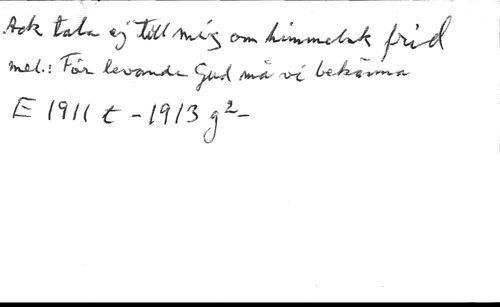 Ack tala ej till mig om himmelsk frid
mel.: För levande Gud må vi bekänna
E 1911 t - 1913 g2-